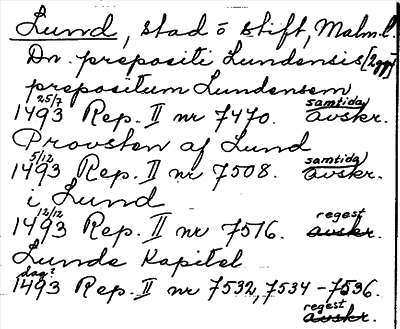 Lund, stad o stift, Malm.l.
Dn. prepositi Lundensis [2 ggr]
prepositum Lundensem
1493 25/7 Rep. II nr 7470. samtida avskr.
Provsten af Lund
1493 5/12 Rep. II nr 7508. samtida avskr.
i Lund
1493 12/12 Rep. II nr 7516. regest avskr.
Lunds Kapitel
1493 dag? Rep. II nr 7532, 7534-7536.
regest
avskr.